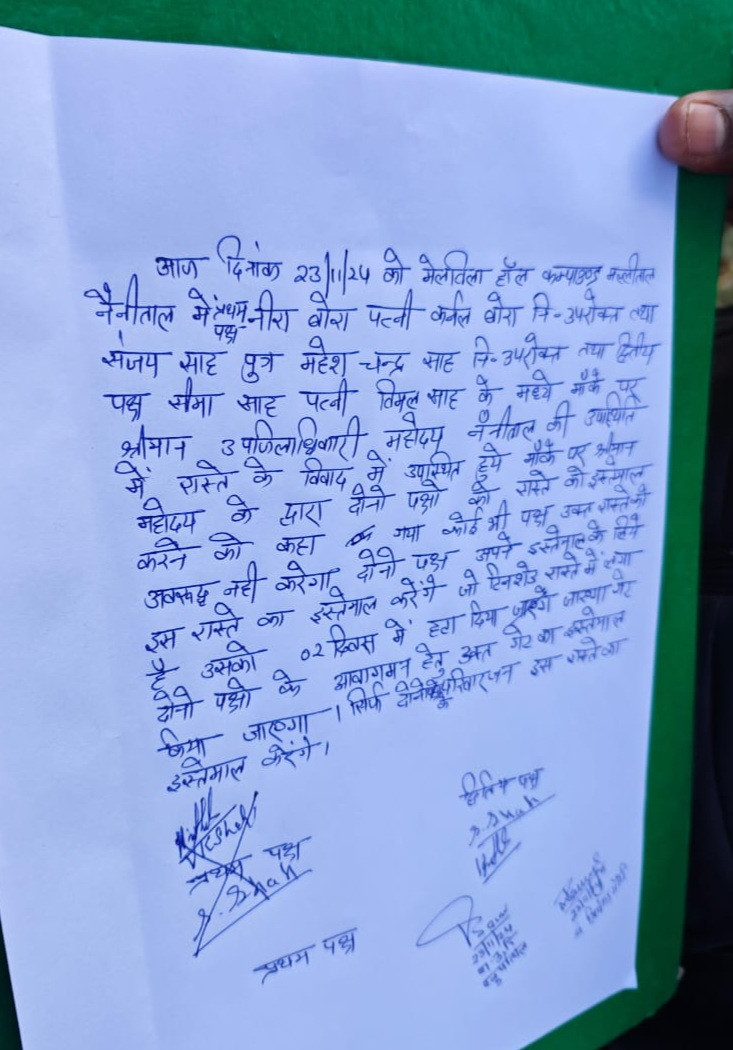 आज दिनांक 23/11/24 को मेलविला हॉल कम्पाउण्ड मल्लीताल
नैनीताल में प्रथम पक्ष नीरा बोरा पत्नी कर्नल बोरा नि-उपरोक्त तथा
संजय साह पुत्र महेश चन्द्र साह नि-उपरोक्त तथा द्वितीय
पक्ष सीमा साह पत्नी विमल साह के मध्ये मौके पर
श्रीमान उपजिलाधिकारी महोदय नैनीताल की उपस्थिति
में रास्ते के विवाद में उपस्थित हुये मौके पर श्रीमान
महोदय के द्वारा दोनो पक्षो को रास्ते को इस्तेमाल
करने को कहा गया कोई भी पक्ष उक्त रास्ते को
अवरूद्ध नही करेगा दोनो पक्ष अपने इस्तेमाल के लिये
इस रास्ते का इस्तेमाल करेंगे जो टिनशेड रास्ते में लगा
है उसको 02 दिवस में हटा दिया जाएगा गेट
दोनो पक्षो के आवागमन हेतु उक्त गेट का इस्तेमाल
किया जाएगा। सिर्फ दोनो के परिवारजन इस रास्ते का
इस्तेमाल करेंगे।
द्वितिय पक्ष
S. Shah
प्रथम पक्ष
S. Shah
प्रथम पक्ष
23/11/24